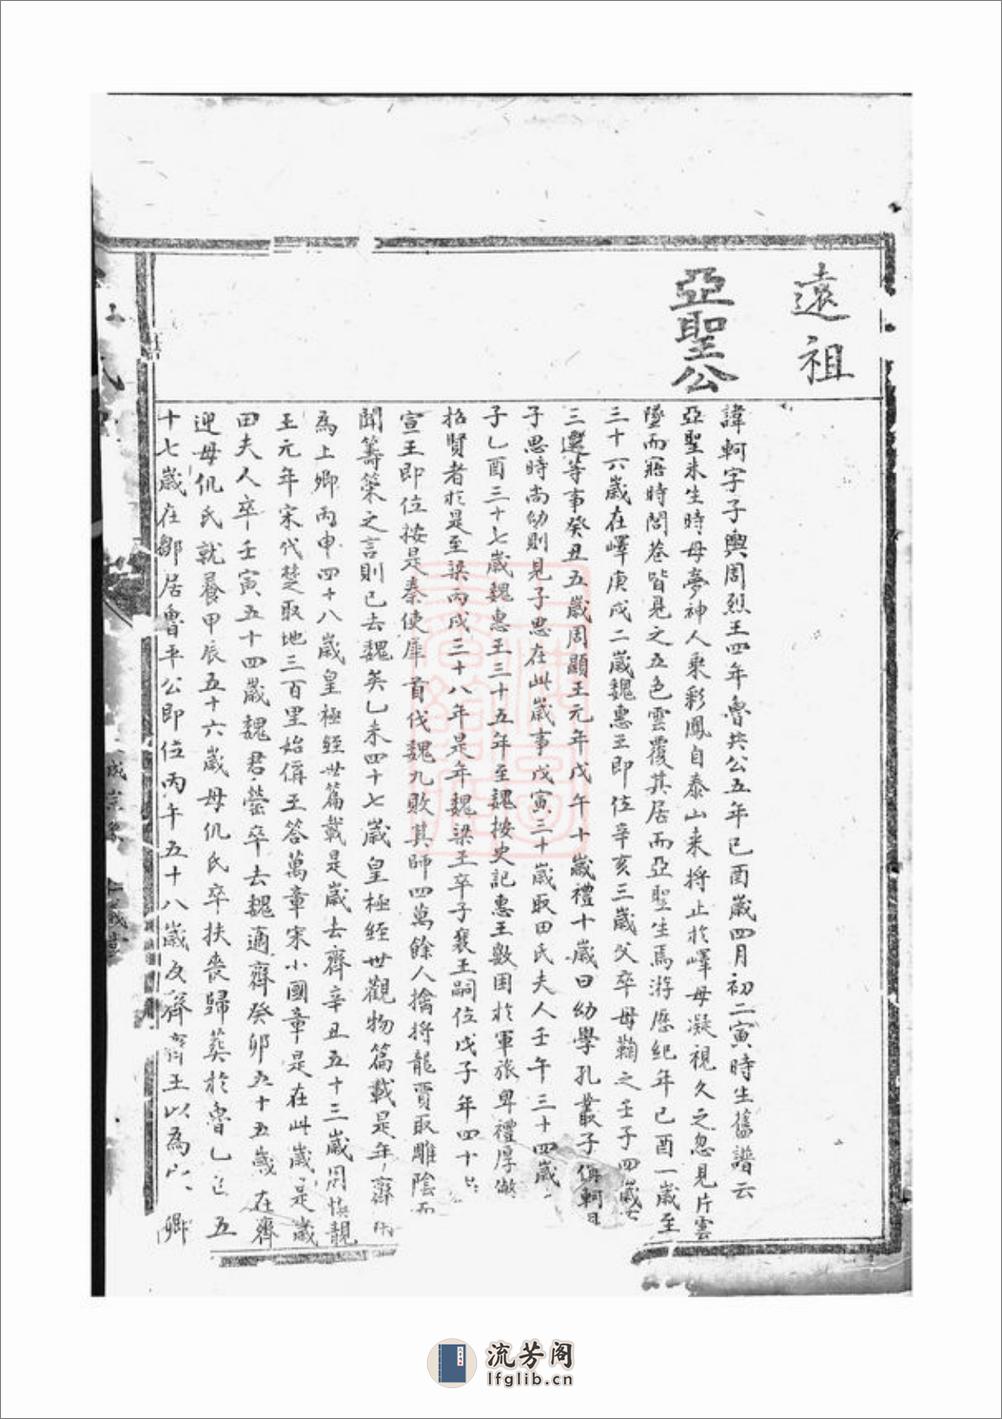 遠祖
亞聖公
諱軻字子輿周烈王四年魯共公五年已酉歲四月初二寅時生舊譜云
亞聖未生時母夢神人乘彩鳳自泰山来將止於嶧母凝視久之忽見片雲
墜而寤時閭巷皆見之五色雲覆其居而亞聖生焉游歷紀年已酉一歲至
三十六歲在嶧庚戌二歲魏惠王即位辛亥三歲父卒母鞠之壬子四歲
三遷等事癸丑五歲周顯王元年戊午十歲禮十歲曰幼學孔叢子俱軻見
子思時尚幼則見子思在此歲事戊寅三十歲取田氏夫人壬午三十四歲
子乙酉三十七歲魏惠王三十五年至魏按史記惠王數困於軍旅卑禮厚
招賢者於是至梁丙戌三十八年是年魏梁王卒子襄王嗣位戊子年四十
宣王即位按是秦使犀首伐魏九敗其師四萬餘人擒將龍賈取雕陰而
聞籌策之言則已去魏矣乙未四十七歲皇極經世觀物篇載是年齊
為上卿丙申四十八歲皇極經世篇載是歲去齊辛丑五十三歲周慎靚
王元年宋代楚取地三百里始僞王答萬章宋小國章是在此歲是歲
田夫人卒壬寅五十四歲魏君罃卒去魏適齊癸卯五十五歲在齊
迎母仉氏就養甲辰五十六歲母仉氏卒扶喪歸葬於魯乙巳五
十七歲在鄒居魯平公即位丙午五十八歲反齊齊王以為 卿
流芳阁
lfglib.cn